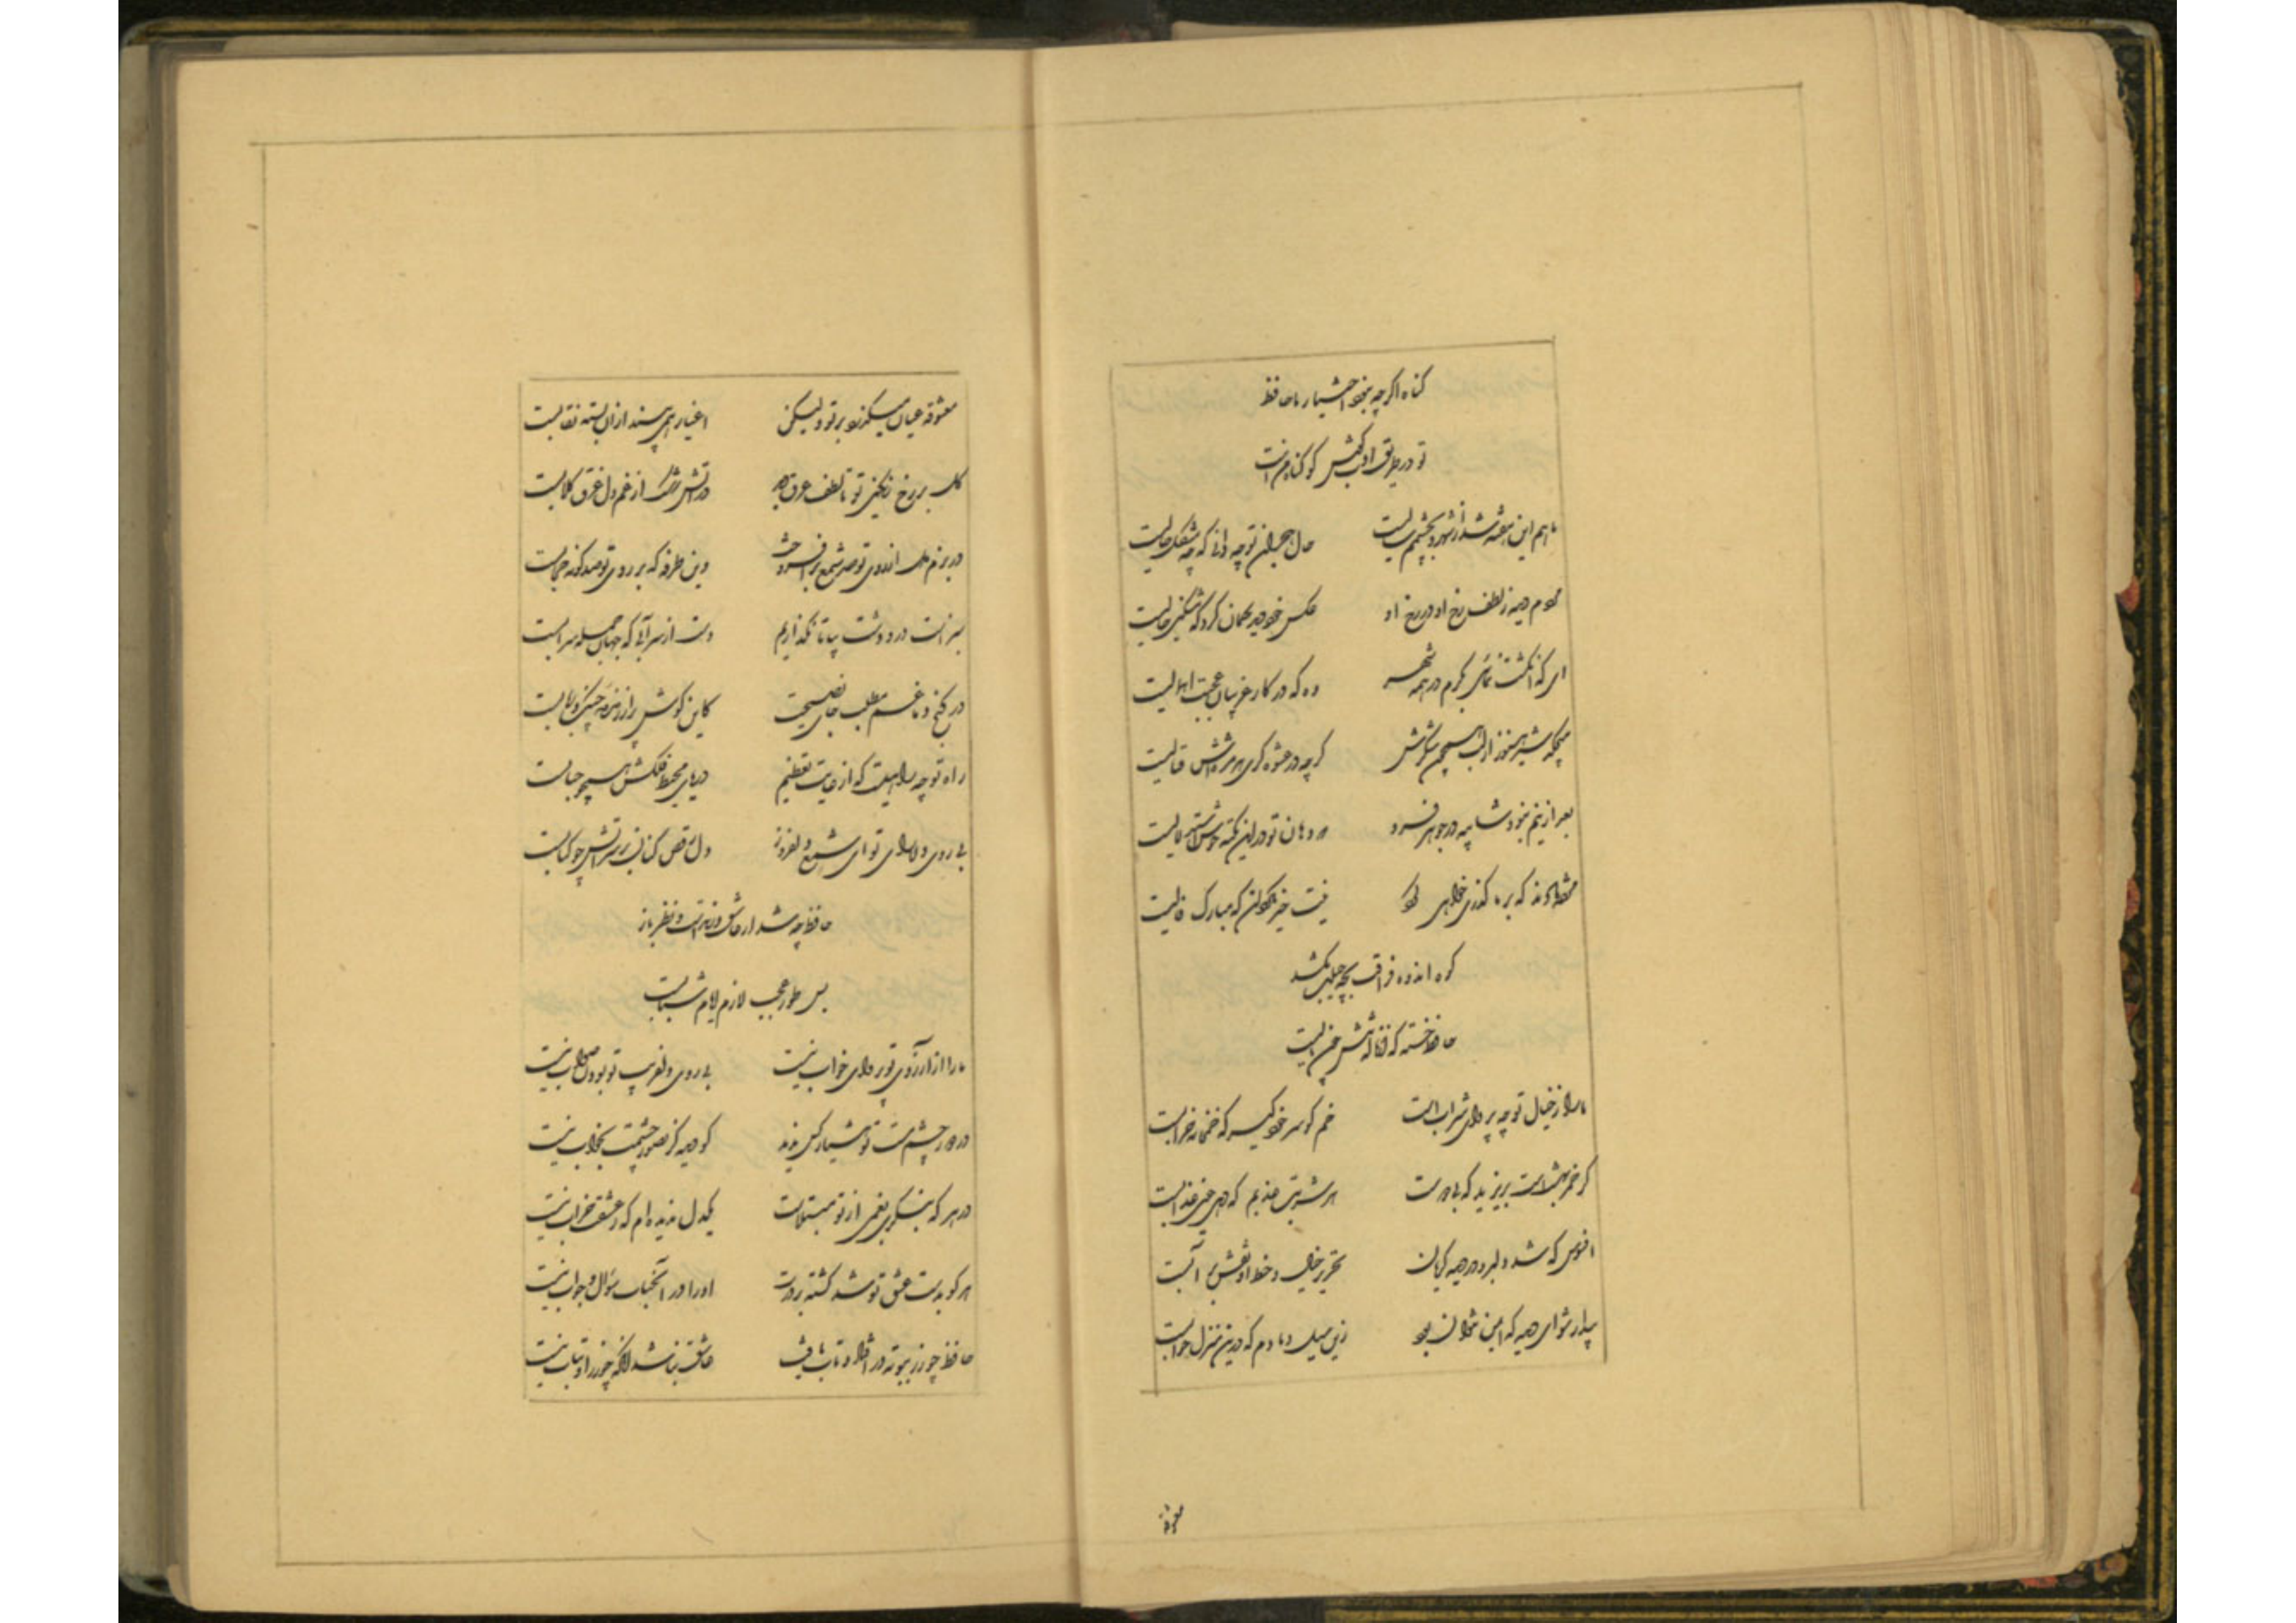 گناه اگرچه نبود اختیار ما حافظ
تو در طریق ادب کوش کو گناه من است
ماهم این هفته شد از شهر و بچشمم سالیست حال هجران تو چه دانی که چه مشکل حالیست
مردم دیده ز لطف رخ او در رخ او عکس خود دید گمان کرد که مشکین خالیست
ای که انگشت نمائی بکرم در همه شهر وه که در کار غریبان عجبت اهمالیست
میچکد شیر هنوز از لب همچون شکرش گرچه در عشوه گری هر مژه اش قتالیست
بعد ازینم نبود شایبه در جوهر فرد که دهان تو درین نکته خوش استدلالیست
مژده دادند که بر ما گذری خواهی کرد نیت خیر مگردان که مبارک فالیست
کوه اندوه فراقت بچه حیلت بکشد
حافظ خسته که از ناله تنش چون نالیست
ما را ز خیال تو چه پروای شرابست خم گو سر خود گیر که خمخانه خرابست
گر خمر بهشتست بریزید که بی دوست هر شربت عذبم که دهی عین عذابست
افسوس که شد دلبر و در دیده گریان تحریر خیال خط او نقش بر آبست
بیدار شو ای دیده که ایمن نتوان بود زین سیل دمادم که درین منزل خوابست
معشوقه
معشوقه عیان میگذرد بر تو ولیکن اغیار همی بیند از آن بسته نقابست
گل بر رخ رنگین تو تا لطف عرق دید در آتش رشک از غم دل غرق گلابست
در بزم دل از روی تو صد شمع برافروخت وین طرفه که بر روی تو صد گونه حجابست
سبزست در و دشت بیا تا نگذاریم دست از سر آبی که جهان جمله سرابست
در کنج دماغم مطلب جای نصیحت کاین گوشه پر از زمزمه چنگ و ربابست
راه تو چه راهیست که از غایت تعظیم دریای محیط فلکش همچو حبابست
بی روی دلارای تو ای شمع دلفروز دل رقص کنان بر سر آتش چو کبابست
حافظ چه شد ار عاشق و رندست و نظر باز
بس طور عجب لازم ایام شبابست
ما را ز آرزوی تو پروای خواب نیست بی روی دلفریب تو بودن صواب نیست
در دور چشم مست تو هشیار کس ندید کو دیده کز تصور چشمت بخواب نیست
در هر که بنگری بغمی از تو مبتلاست یکدل ندیده ام که ز عشقت خراب نیست
هر کو بدست عشق تو شد کشته بر درت او را در آنجناب سؤال و جواب نیست
حافظ چو زر ببوته در افتاد و تاب یافت عاشق نباشد آنکه چو زر او بتاب نیست